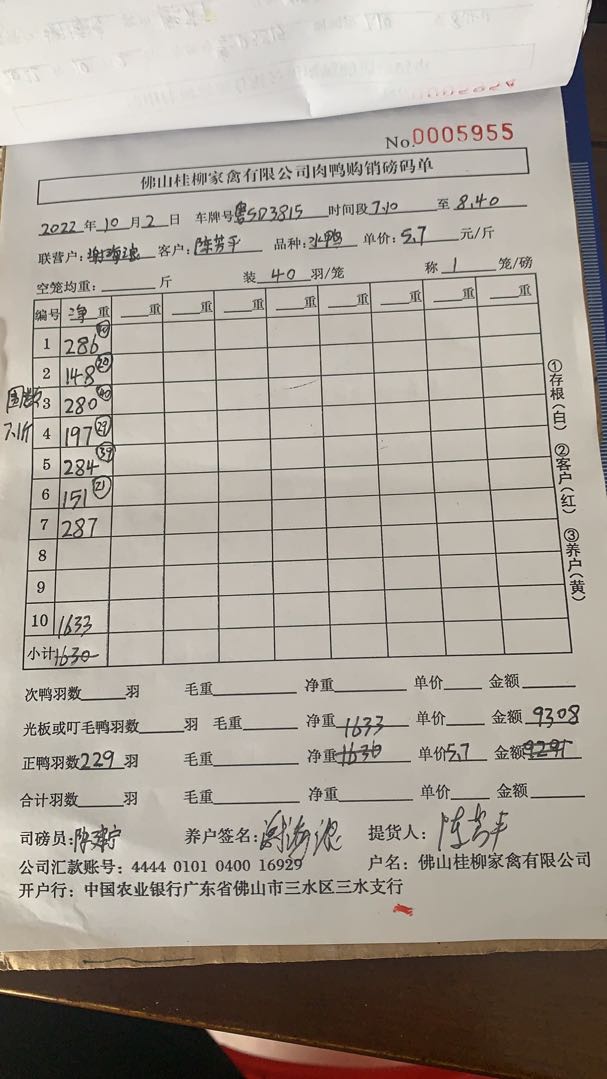 No.0005955
佛山桂柳家禽有限公司肉鸭购销磅码单
2022年10月2日 车牌号粤SD3815 时间段7.10至8.40
联营户:谢海滨 客户:陈芳平 品种:水鸭 单价:5.7元/斤
空笼均重:____斤 装40羽/笼 称1笼/磅
编号 净重 __重 __重 __重 __重 __重 __重 __重 __重
1 286 40
2 148 20
3 280 40
4 197 29
5 284 39
6 151 21
7 287
8
9
10 1633
小计 1630
7.1斤
①存根(白) ②客户(红) ③养户(黄)
次鸭羽数____羽 毛重____ 净重____ 单价____ 金额____
光板或叮毛鸭羽数____羽 毛重____ 净重1633 单价____ 金额9308
正鸭羽数229羽 毛重____ 净重1630 单价5.7 金额9291
合计羽数____羽 毛重____ 净重____ 单价____ 金额____
司磅员: 养户签名:谢海滨 提货人:陈芳平
公司汇款账号:4444 0101 0400 16929 户名:佛山桂柳家禽有限公司
开户行:中国农业银行广东省佛山市三水区三水支行